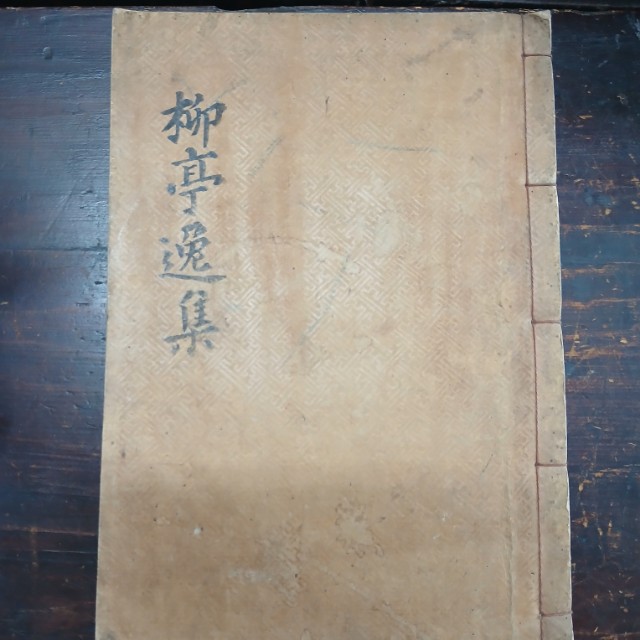 柳亭逸集